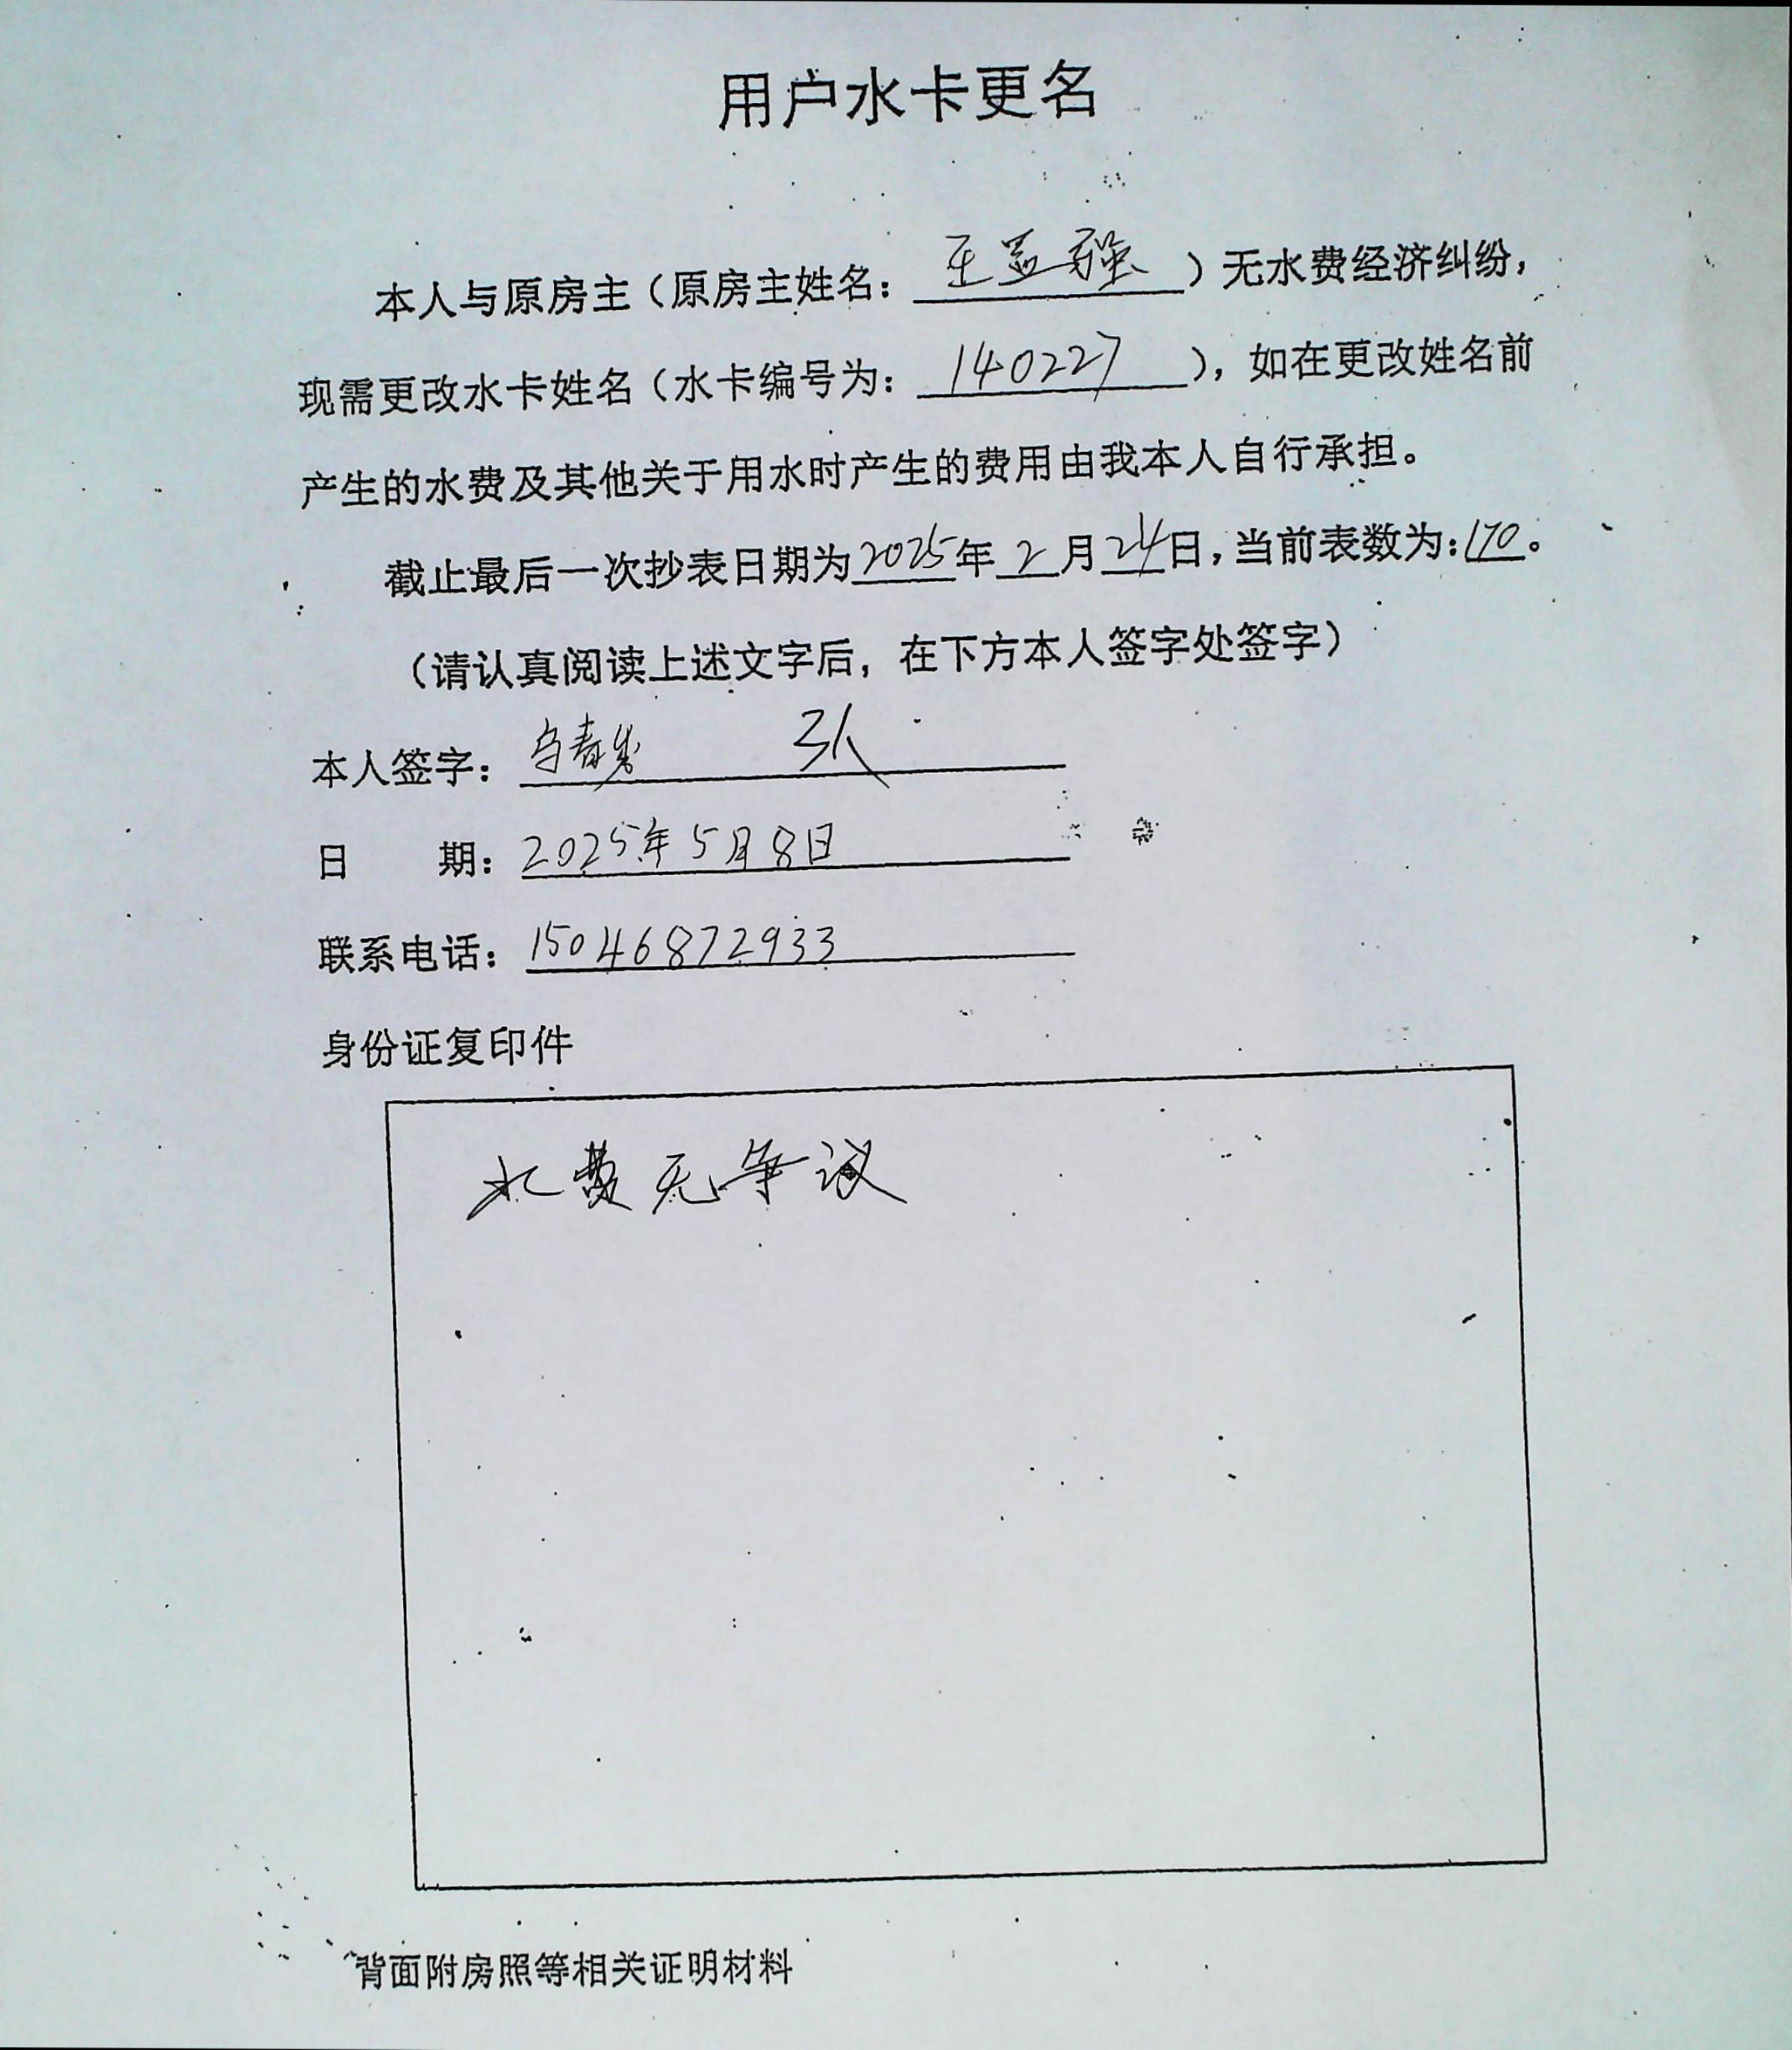 用户水卡更名
本人与原房主（原房主姓名：王孟强）无水费经济纠纷，
现需更改水卡姓名（水卡编号为：140227），如在更改姓名前
产生的水费及其他关于用水时产生的费用由我本人自行承担。
截止最后一次抄表日期为2025年2月24日，当前表数为：170。
（请认真阅读上述文字后，在下方本人签字处签字）
本人签字： 3人
日 期：2025年5月8日
联系电话：15046872933
身份证复印件
水费无争议
背面附房照等相关证明材料